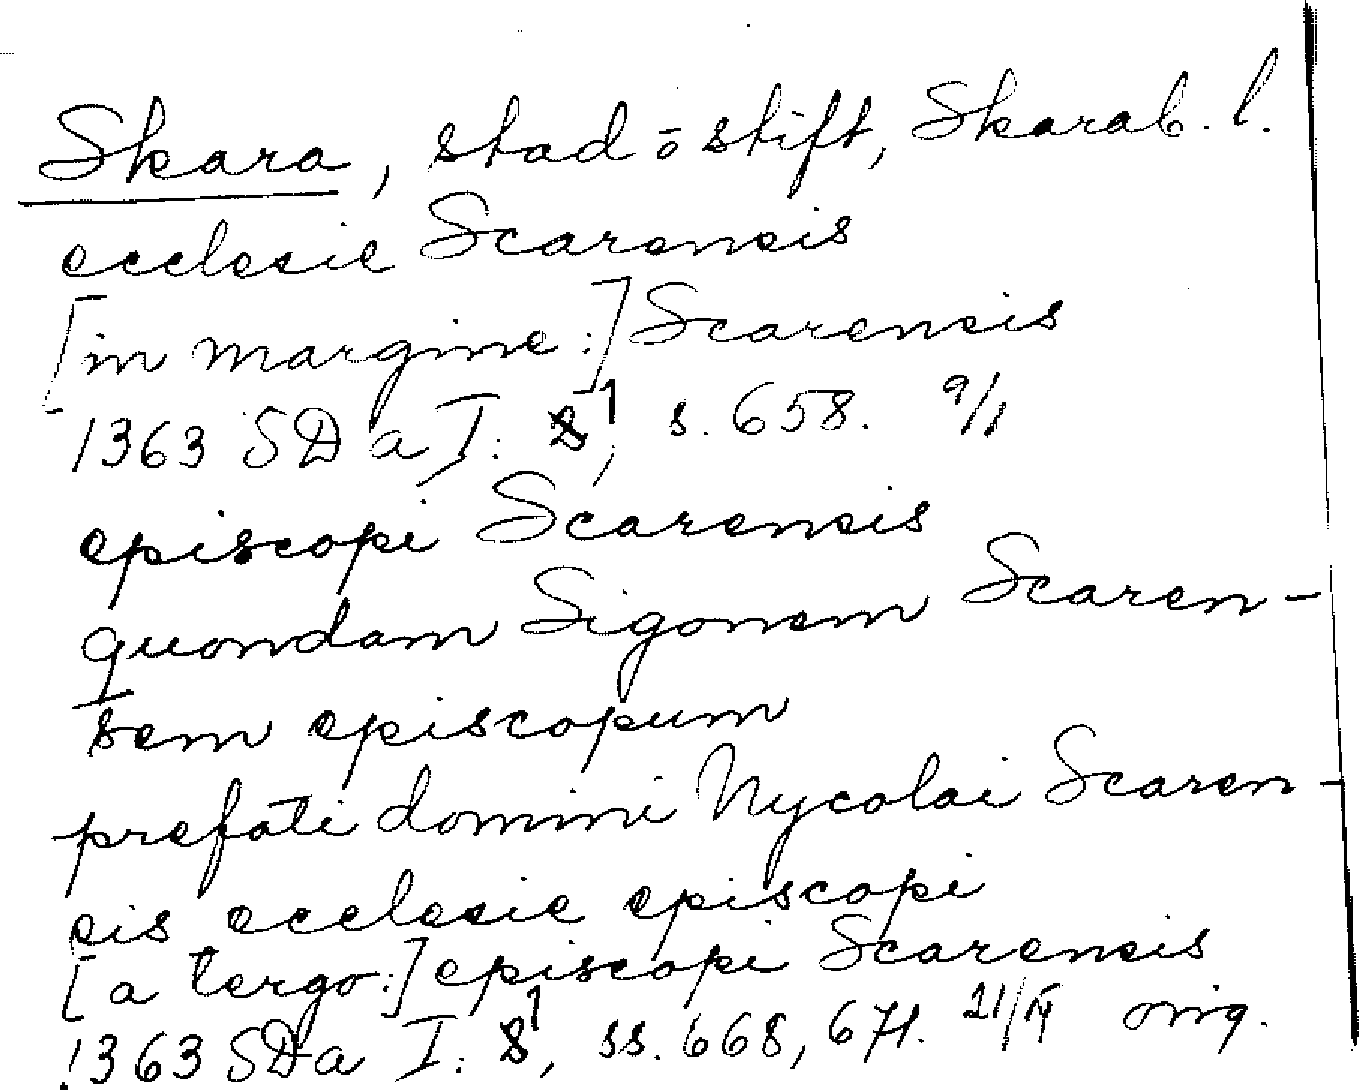 Skara, stad o stift, Skarab. l.
ecclesie Scarensis
[in margine:] Scarensis
1363 SDa I: 8¹, s. 658. 9/1
episcopi Scarensis
quondam Sigonem Scaren-
sem episcopum
prefati domini Nycolai Scaren-
sis ecclesie episcopi
[a tergo:] episcopi Scarensis
1363 SDa I: 8¹, ss. 668, 671. 21/IV orig.